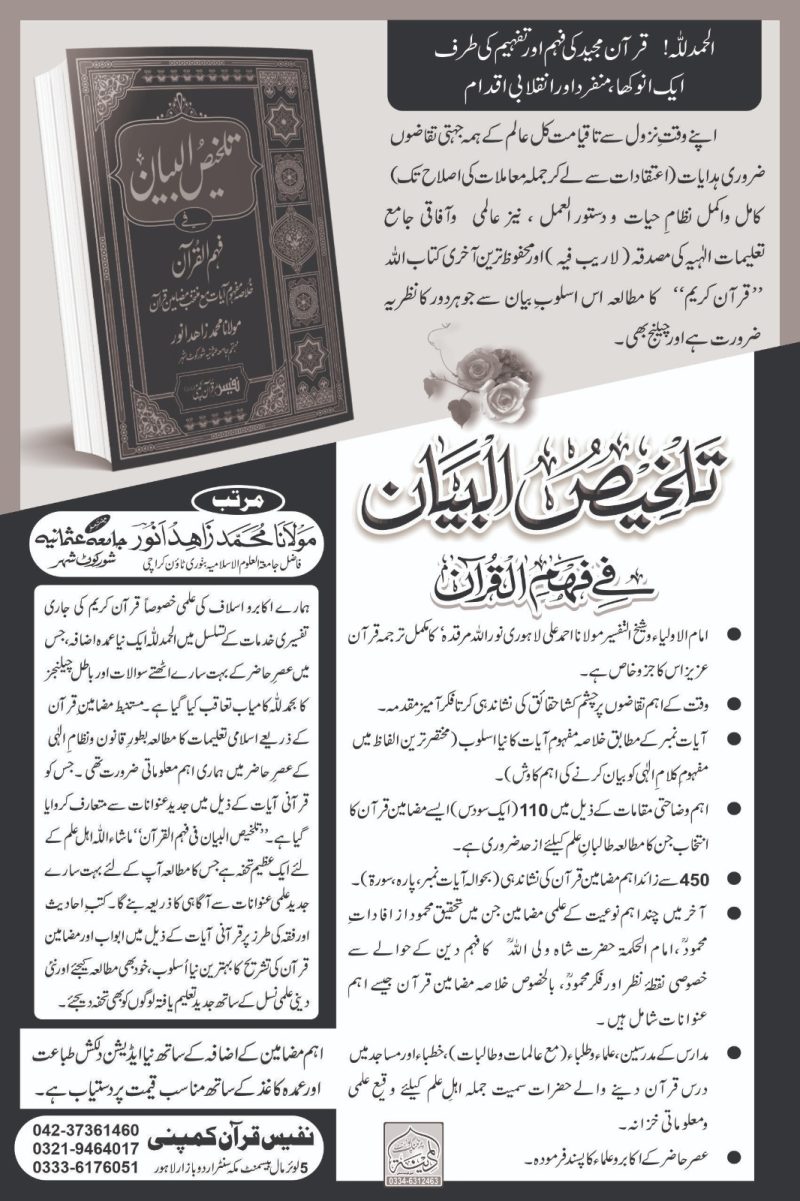 الحمد للہ! قرآن مجید کی فہم اور تفہیم کی طرف
ایک انوکھا، منفرد اور انقلابی اقدام
اپنے وقتِ نزول سے تا قیامت کل عالم کے ہمہ جہتی تقاضوں
ضروری ہدایات (اعتقادات سے لے کر جملہ معاملات کی اصلاح تک)
کامل و اکمل نظامِ حیات و دستور العمل، نیز عالمی و آفاقی جامع
تعلیمات الٰہیہ کی مصدقہ (لا ریب فیہ) اور محفوظ ترین آخری کتاب اللہ
’’قرآن کریم‘‘ کا مطالعہ اس اسلوبِ بیان سے جو ہر دور کا نظریہ
ضرورت ہے اور چیلنج بھی۔
تلخیص البیان
فی
فہم القرآن
خلاصہ مفہوم آیات مع منتخب مضامین قرآن
مولانا محمد زاہد انور
مہتمم جامعہ عثمانیہ شورکوٹ شہر
نفیس قرآن کمپنی
تَلخِیصُ البَیَان
فِی فَہمِ القُرآن
امام الاولیاء و شیخ التفسیر مولانا احمد علی لاہوری نور اللہ مرقدہٗ کا مکمل ترجمہ قرآن
عزیز اس کا جزو خاص ہے۔
وقت کے اہم تقاضوں پر چشم کشا حقائق کی نشاندہی کرتا فکر آمیز مقدمہ۔
آیات نمبر کے مطابق خلاصہ مفہوم آیات کا نیا اسلوب (مختصر ترین الفاظ میں
مفہوم کلامِ الٰہی کو بیان کرنے کی اہم کاوش)۔
اہم وضاحتی مقامات کے ذیل میں 110 (ایک سو دس) ایسے مضامین قرآن کا
انتخاب جن کا مطالعہ طالبانِ علم کیلئے از حد ضروری ہے۔
450 سے زائد اہم مضامین قرآن کی نشاندہی (بحوالہ آیات نمبر، پارہ، سورۃ)۔
آخر میں چند اہم نوعیت کے علمی مضامین جن میں تحقیق محمود از افاداتِ
محمودؒ، امام الحکمۃ حضرت شاہ ولی اللہؒ کا فہم دین کے حوالے سے
خصوصی نقطۂ نظر اور فکر محمودؒ، بالخصوص خلاصہ مضامین قرآن جیسے اہم
عنوانات شامل ہیں۔
مدارس کے مدرسین، علماء و طلباء (مع عالمات و طالبات)، خطباء اور مساجد میں
درس قرآن دینے والے حضرات سمیت جملہ اہلِ علم کیلئے وقیع علمی
و معلوماتی خزانہ۔
عصر حاضر کے اکابر و علماء کا پسند فرمودہ۔
0334-6312463
مرتب
مولانا محمد زاہد انور مہتمم جامعہ عثمانیہ شورکوٹ شہر
فاضل جامعۃ العلوم الاسلامیہ بنوری ٹاؤن کراچی
ہمارے اکابر و اسلاف کی علمی خصوصاً قرآن کریم کی جاری
تفسیری خدمات کے تسلسل میں الحمد للہ ایک نیا عمدہ اضافہ، جس
میں عصر حاضر کے بہت سارے اٹھتے سوالات اور باطل چیلنجز
کا بحمد للہ کامیاب تعاقب کیا گیا ہے۔ مستنبط مضامینِ قرآن
کے ذریعے اسلامی تعلیمات کا مطالعہ بطورِ قانون و نظامِ الٰہی
کے عصر حاضر میں ہماری اہم معلوماتی ضرورت تھی۔ جس کو
قرآنی آیات کے ذیل میں جدید عنوانات سے متعارف کروایا
گیا ہے۔ ’’تلخیص البیان فی فہم القرآن‘‘ ماشاء اللہ اہل علم کے
لئے ایک عظیم تحفہ ہے جس کا مطالعہ آپ کے لئے بہت سارے
جدید علمی عنوانات سے آگاہی کا ذریعہ بنے گا۔ کتبِ احادیث
اور فقہ کی طرز پر قرآنی آیات کے ذیل میں ابواب اور مضامین
قرآن کی تشریح کا بہترین نیا اُسلوب، خود بھی مطالعہ کیجئے اور نئی
دینی علمی نسل کے ساتھ جدید تعلیم یافتہ لوگوں کو بھی تحفہ دیجئے۔
اہم مضامین کے اضافہ کے ساتھ نیا ایڈیشن دلکش طباعت
اور عمدہ کاغذ کے ساتھ مناسب قیمت پر دستیاب ہے۔
نفیس قرآن کمپنی
5 لوئر مال بیسمنٹ مکہ سنٹر اردو بازار لاہور
042-37361460
0321-9464017
0333-6176051